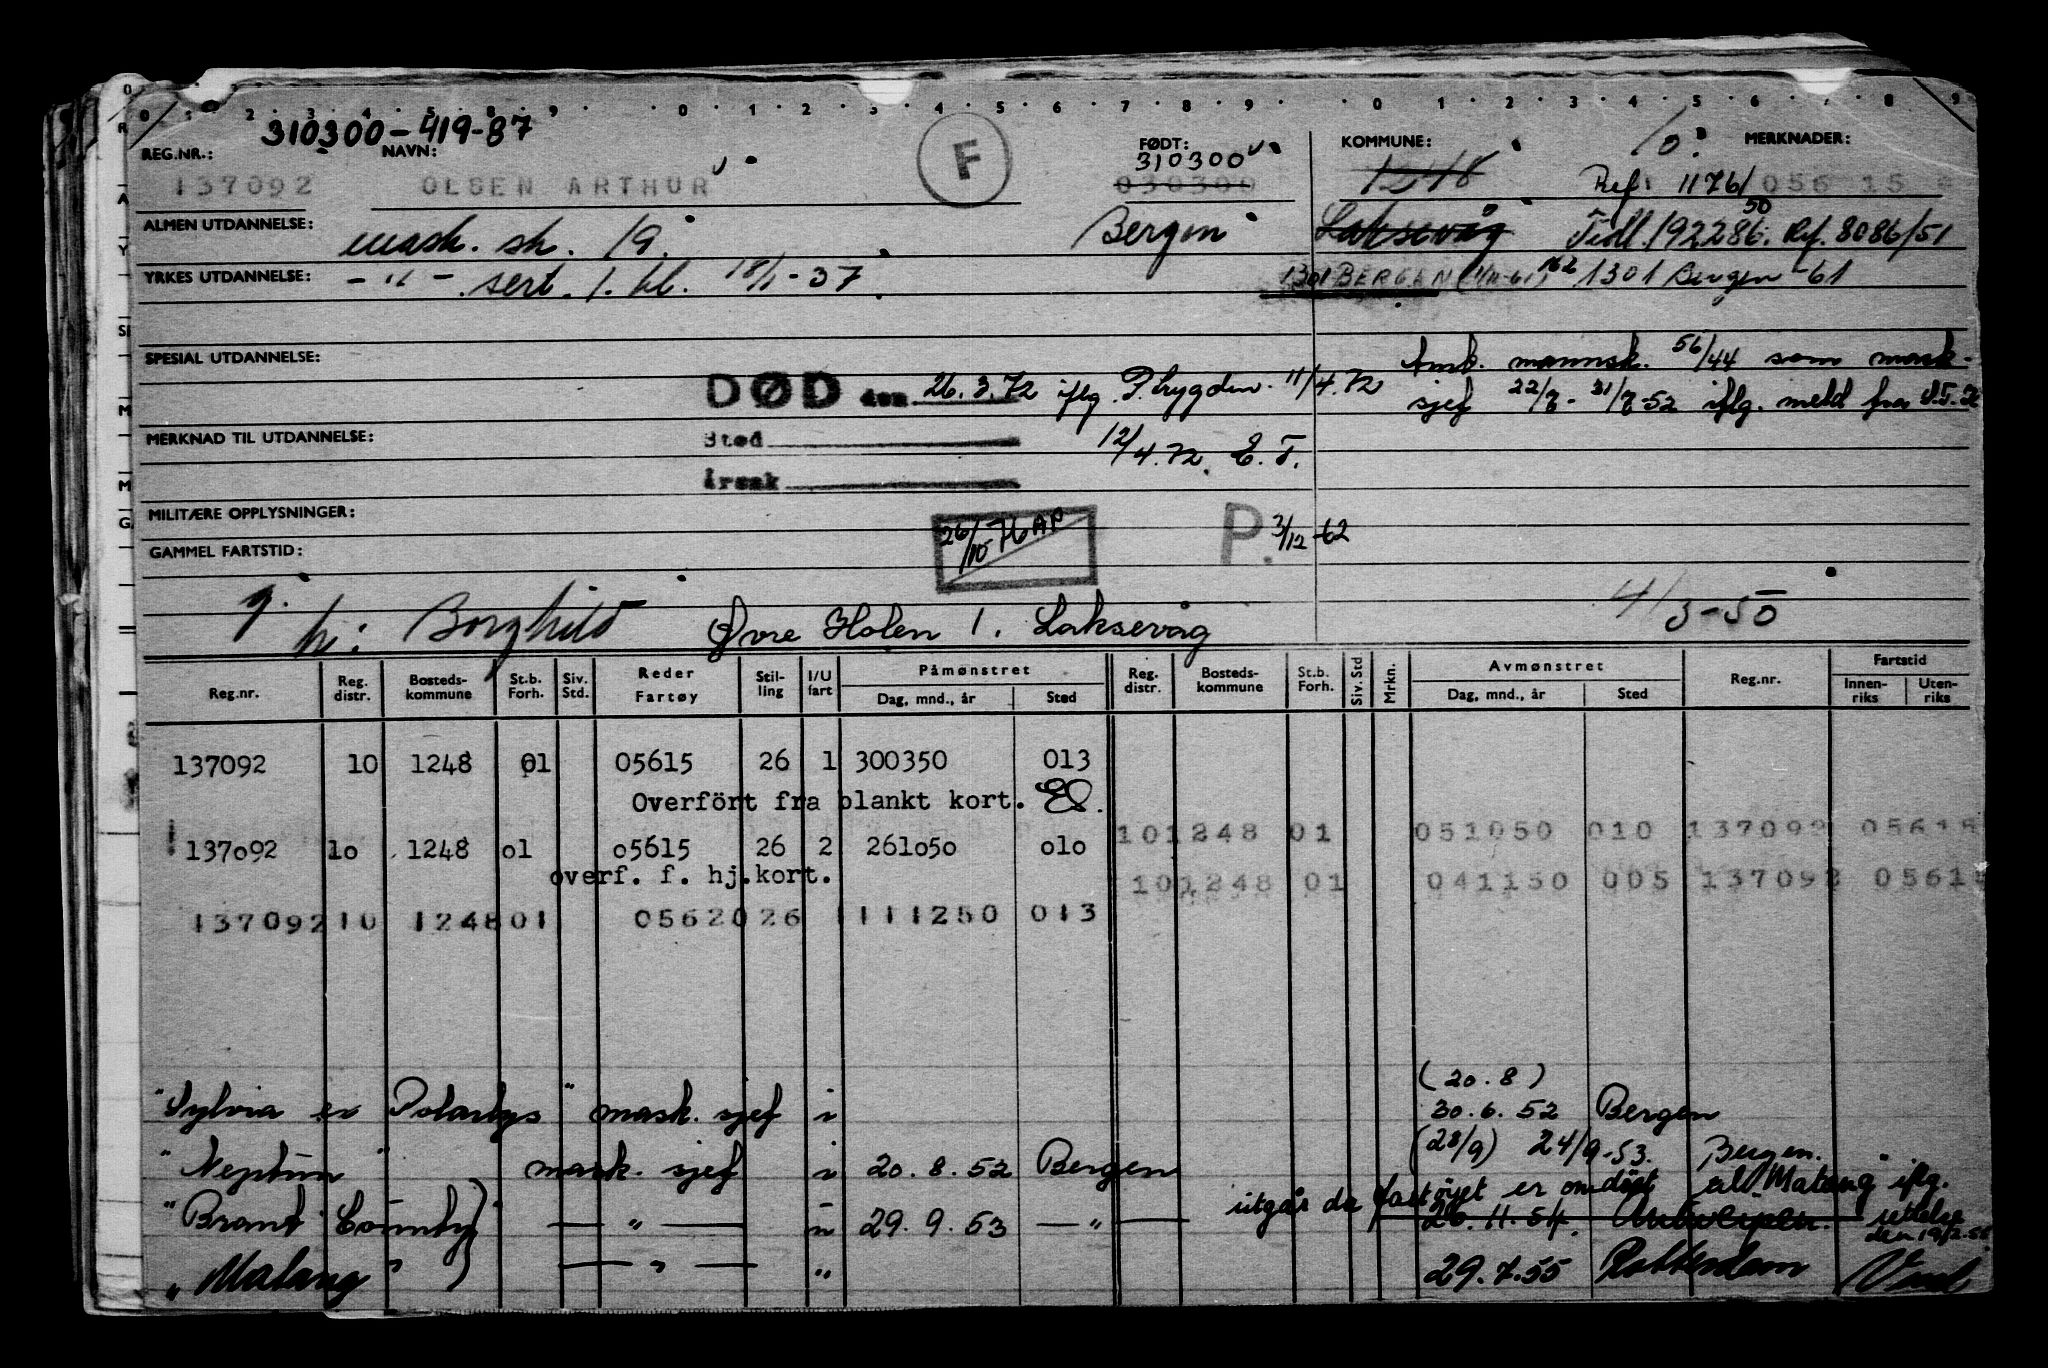 310300-419-87
REG.NR.: NAVN: F FØDT: KOMMUNE: MERKNADER:
137092 OLSEN ARTHUR 310300 030300 1248 Ref: 1176/50 05615
ALMEN UTDANNELSE: mask. sk. 19. Bergen Laksevåg Tidl. 192286. Ref. 8086/51
YRKES UTDANNELSE: - " - sert. 1. kl. 18/1-37 1301 BERGEN 1301 Bergen -61
SPESIAL UTDANNELSE: Amk. mannsk. 56/44 som mask-
DØD den 26.3.72 iflg. P.trygden. 11/4.72 sjef 22/7- 31/7-52 iflg. meld fra
MERKNAD TIL UTDANNELSE: Sted 12/4.72. E.T.
Årsak
MILITÆRE OPPLYSNINGER: 26/10-76 AP P. 3/12-62
GAMMEL FARTSTID:
g. 4/3-50
h: Borghild Øvre Holen 1. Laksevåg
Reg.nr. Reg. distr. Bosteds-kommune St.b. Forh. Siv. Std. Reder Fartøy Stil-ling I/U fart Påmønstret Dag, mnd., år Sted Reg. distr. Bosteds-kommune St.b. Forh. Siv. Std Mrkn. Avmønstret Dag, mnd., år Sted Reg.nr. Fartstid Innen-riks Uten-riks
137092 10 1248 01 05615 26 1 300350 013
Overført fra blankt kort.
101248 01 051050 010 137092 05615
137o92 1o 1248 o1 o5615 26 2 261o5o o1o
overf. f. hj.kort.
101248 01 041150 005 137092 05615
137092 10 124801 0562026 1111250 013
(20.8)
"Sylvia ex Polarbys" mask. sjef i 30.6.52 Bergen
(28/9) 24/9-53. Bergen.
"Neptun" mask. sjef i 20.8.52 Bergen
utgår da fartøyet er omdøpt til "Matang" iflg.
"Brant County" — " — u 29.9.53 — " — 26.11.54. Antwerpen. rettelse
"Matang" — " — " 29.7.55 Rotterdam